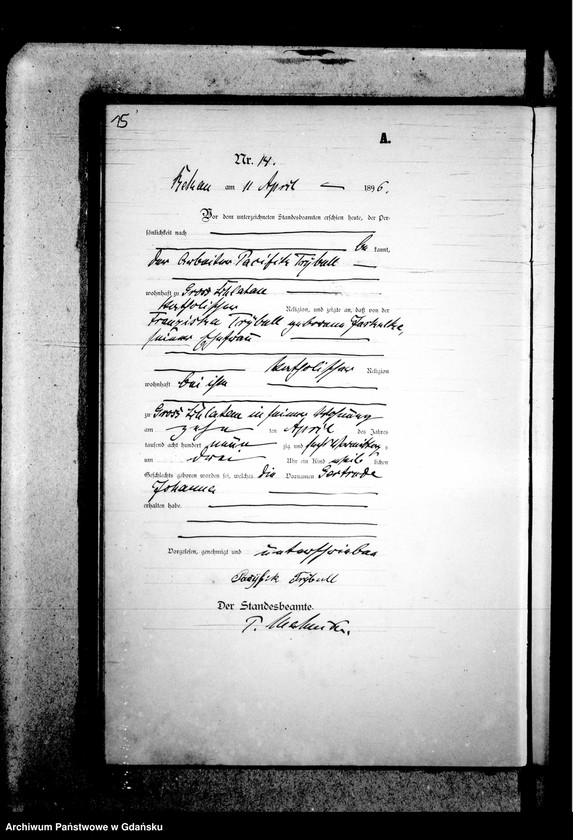 15
A.
Nr. 14.
am 11 April 1896.
Vor dem unterzeichneten Standesbeamten erschien heute, der Per-
sönlichkeit nach
be kannt,
der Arbeiter Trÿball
wohnhaft zu Gross
katholischer Religion, und zeigte an, daß von der
Franziska Trÿball geborene
seiner Ehefrau
katholischer Religion
wohnhaft bei ihm
zu Gross in seiner Wohnung
am zehn ten April des Jahres
tausend acht hundert neun zig und sechs Vormittags
um drei Uhr ein Kind weib lichen
Geschlechts geboren worden sei, welches die Vornamen Gertrude
Johanna
erhalten habe.
Vorgelesen, genehmigt und unterschrieben
Trÿball
Der Standesbeamte.
Archiwum Państwowe w Gdańsku